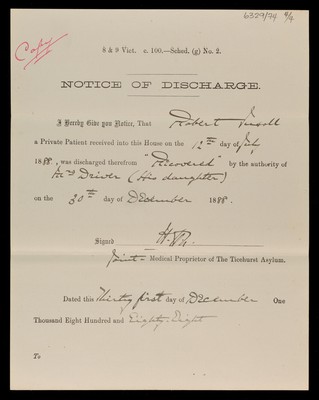 6329/94 9/4
Copy
8 & 9 Vict. c. 100.—Sched. (g) No. 2.
NOTICE OF DISCHARGE.
I Hereby Give you Notice, That Robert
a Private Patient received into this House on the 12th day of July
1888, was discharged therefrom "Recovered" by the authority of
Mrs Driver (His daughter)
on the 30th day of December 1888.
Signed
Joint- Medical Proprietor of The Ticehurst Asylum.
Dated this Thirty first day of December One
Thousand Eight Hundred and Eighty-Eight
To